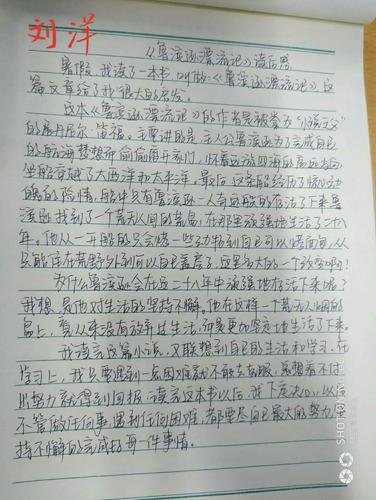 刘洋
《鲁滨逊漂流记》读后感
暑假,我读了一本书,叫做《鲁滨逊漂流记》,这
篇文章给了我很大的启发。
这本《鲁滨逊漂流记》的作者是被誉为“小说之父”
的丹尼尔·笛福。主要讲的是,主人公鲁滨逊为了完成自己
的航海梦想而偷偷离开家门,怀着远游四海的高远志向
坐船穿越了大西洋和太平洋。最后,这条船经历了惊心动
魄的险情,船中只有鲁滨逊一人奇迹般的存活了下来鲁
滨逊找到了一个荒无人间的荒岛,在那里顽强地生活了二十八
年。他从一开始的只会
只能住在荒野外到可以自己盖房子,这是多大的一个改变啊!
为什么鲁滨逊会在这二十八年中顽强地存活下来呢?
我想,是他对生活的坚持不懈。他在这样一个荒无人烟的
岛上,看从来没有放弃过生活,而是更加坚定地生活了下来。
我读完这篇小说,又联想到自己的生活和学习,在
学习上,我只要遇到一点困难就不敢去克服,总想着不付
出努力就得到回报,读完这本书以后,我下定决心,以后
不管做任何事,遇到任何困难,都要尽自己最大的努力,坚
持不懈的完成好每一件事情。
SHOT ON